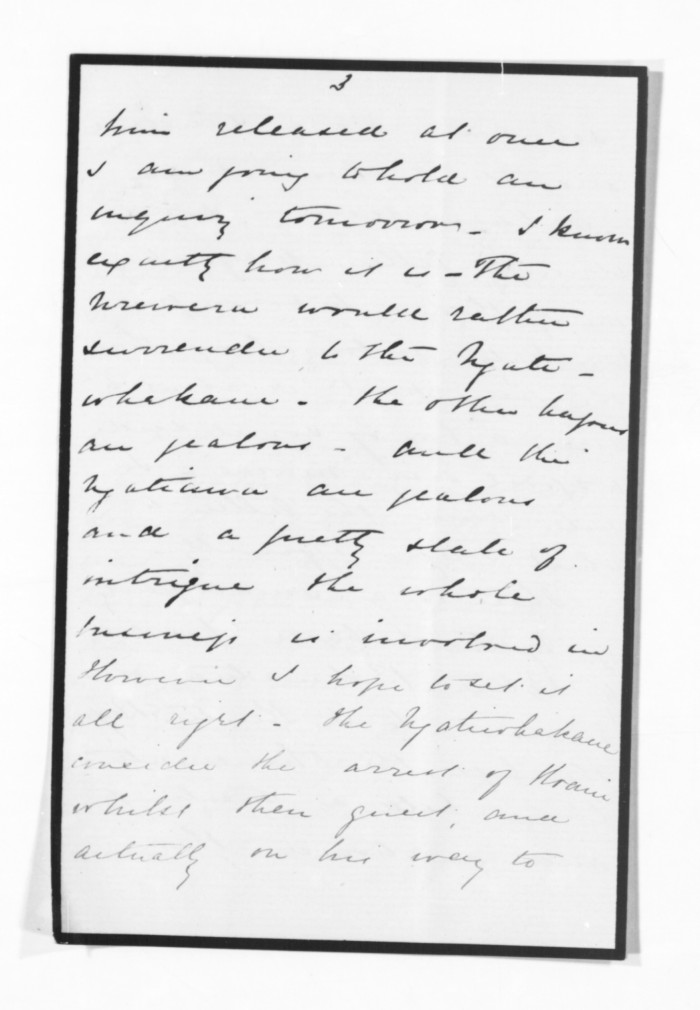 3
him released at once
I am going to hold an
inquiry tomorrow - I know
exactly how it is - The
Urewera would rather
surrender to the Ngati-
whakaue - the other hapus
are jealous - and the
Ngatiawa are jealous
and a pretty state of
intrigue the whole
business is involved in
However I hope to set it
all right - the Ngatiwhakaue
consider the arrest of
whilst their guest, and
actually on his way to